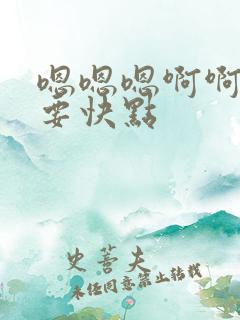 嗯嗯嗯啊啊
要快點
史萫夫
未经同意禁止转载